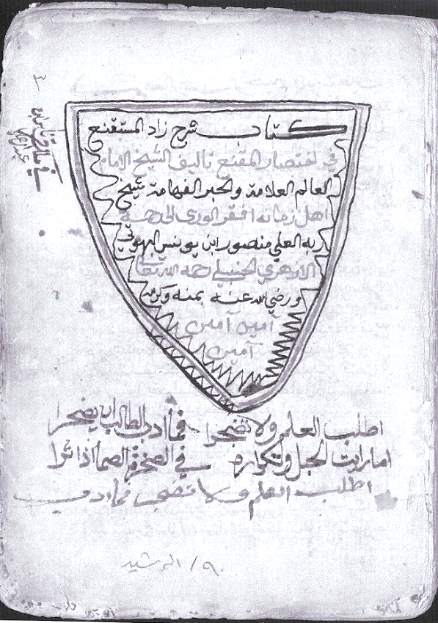 كتاب شرح زاد المستقنع
في اختصار المقنع تاليف الشيخ الامام
العالم العلامة والحبر الفهامة شيخ
اهل زمانه افقر الورى الى رحمة
ربه العلي منصور ابن يونس البهوتي
الازهري الحنبلي رحمه الله تعالى
ورضي الله عنه بمنه وكرمه
آمين آمين
آمين
اطلب العلم ولا تضجرا فما دب الطالب ان يضجرا
اما رايت الحبل وتكراره في الصخرة الصما اذ اثرا
اطلب العلم ولا تضجر
٩٠/ الرشيد